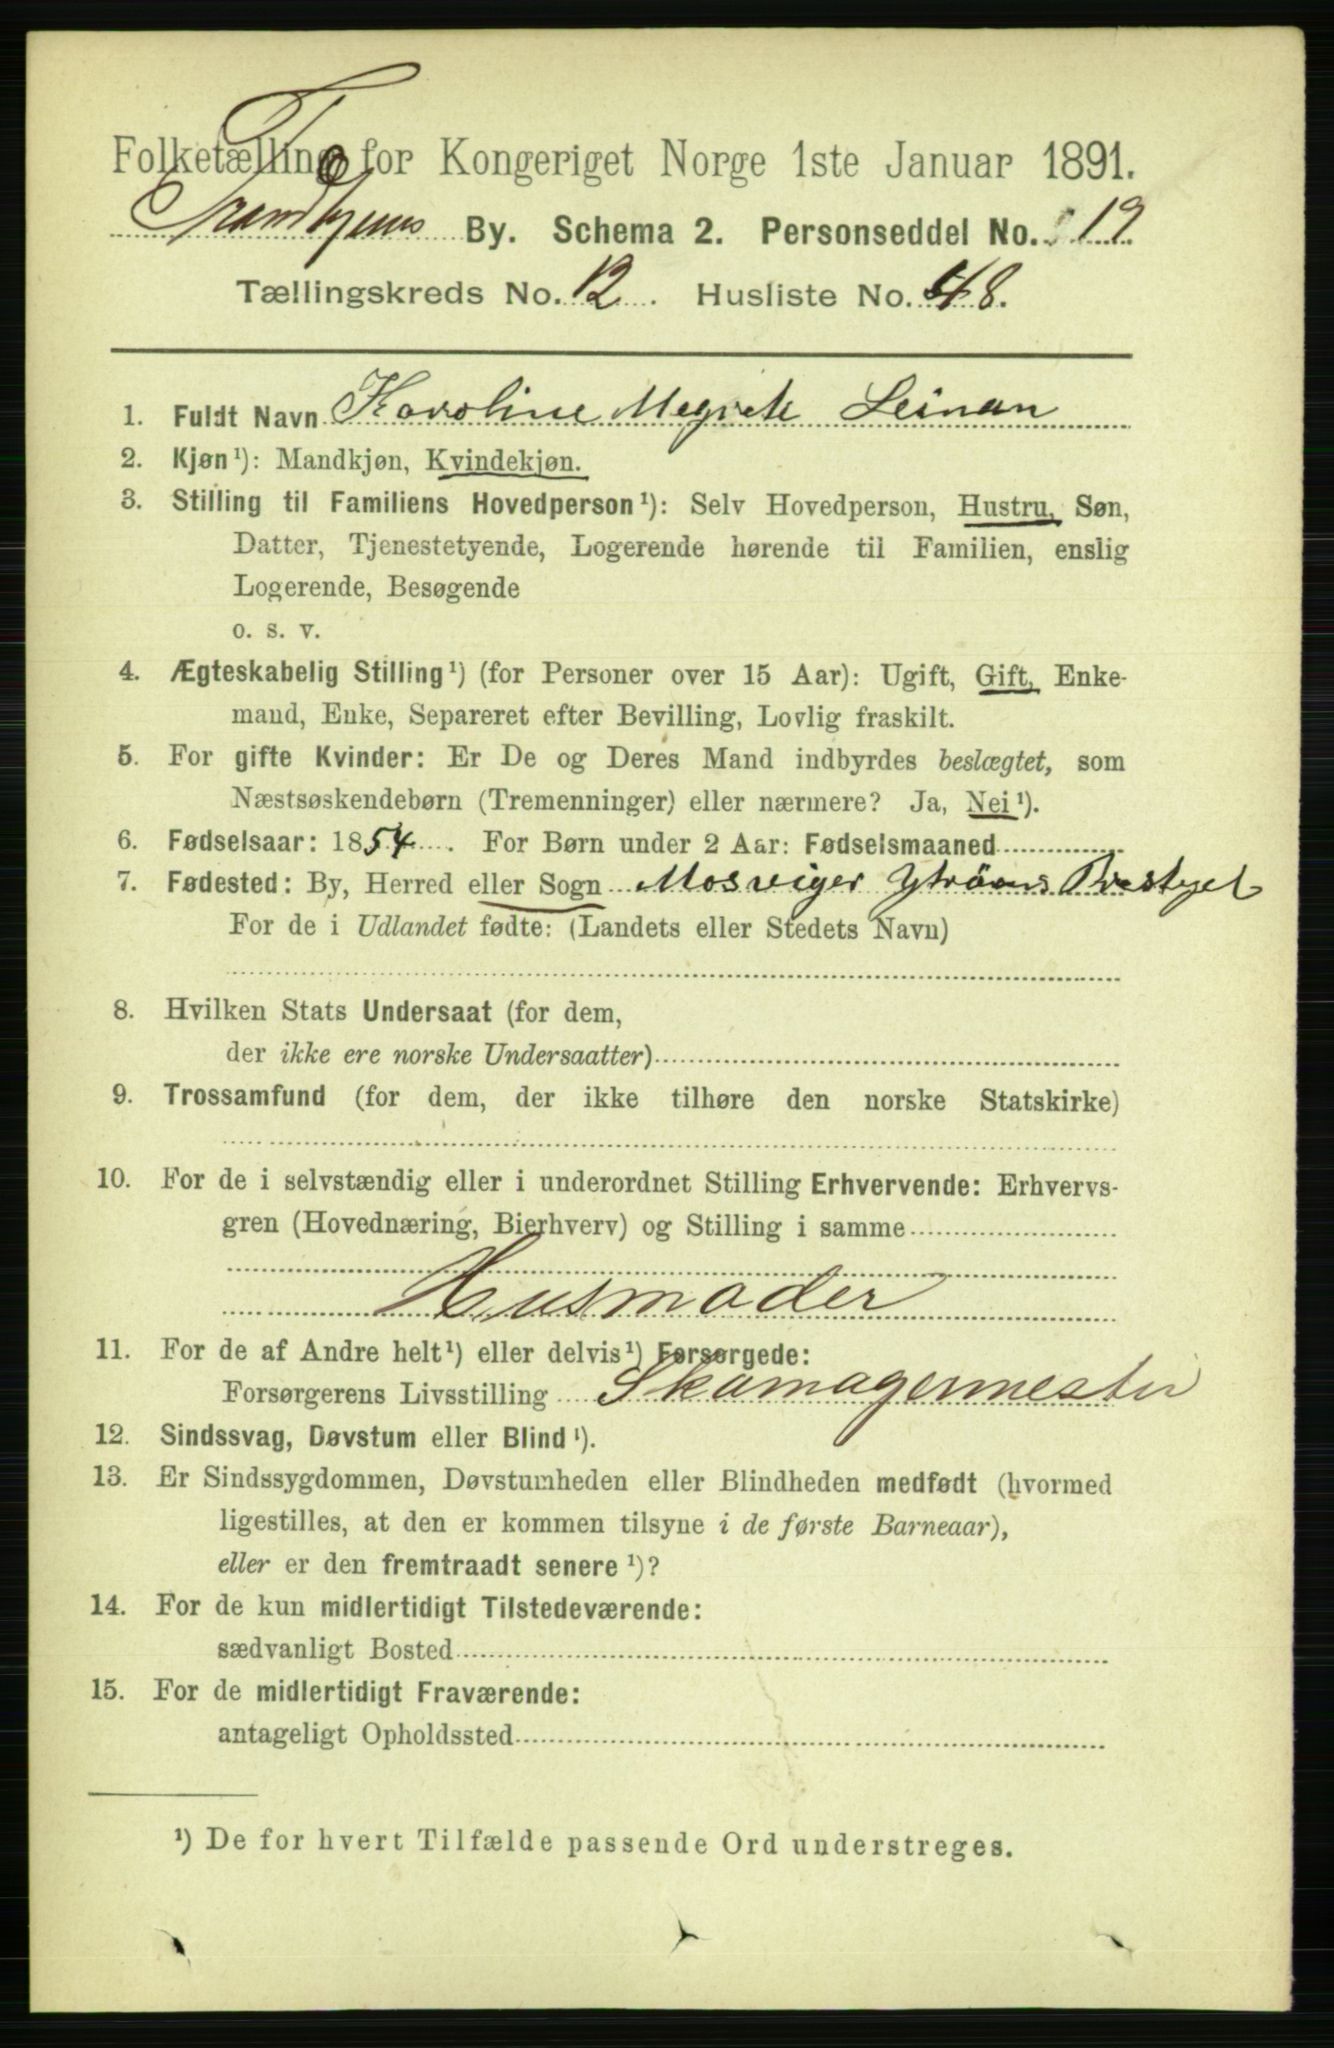 To
Folketælling for Kongeriget Norge 1ste Januar 1891.
Trondhjems By. Schema 2. Personseddel No. 19
Tællingskreds No. 12. Husliste No. 48.
1. Fuldt Navn Karoline Megrete Leinan
2. Kjøn¹): Mandkjøn, Kvindekjøn.
3. Stilling til Familiens Hovedperson¹): Selv Hovedperson, Hustru, Søn,
Datter, Tjenestetyende, Logerende hørende til Familien, enslig
Logerende, Besøgende
o. s. v.
4. Ægteskabelig Stilling¹) (for Personer over 15 Aar): Ugift, Gift, Enke-
mand, Enke, Separeret efter Bevilling, Lovlig fraskilt.
5. For gifte Kvinder: Er De og Deres Mand indbyrdes beslægtet, som
Næstsøskendebørn (Tremenninger) eller nærmere? Ja, Nei¹).
6. Fødselsaar: 1854. For Børn under 2 Aar: Fødselsmaaned
7. Fødested: By, Herred eller Sogn Mosviger Ytröens Prestgel
For de i Udlandet fødte: (Landets eller Stedets Navn)
8. Hvilken Stats Undersaat (for dem,
der ikke ere norske Undersaatter)
9. Trossamfund (for dem, der ikke tilhøre den norske Statskirke)
10. For de i selvstændig eller i underordnet Stilling Erhvervende: Erhvervs-
gren (Hovednæring, Bierhverv) og Stilling i samme
Husmoder
11. For de af Andre helt¹) eller delvis¹) Forsørgede:
Forsørgerens Livsstilling Skomagermester
12. Sindssvag, Døvstum eller Blind¹).
13. Er Sindssygdommen, Døvstumheden eller Blindheden medfødt (hvormed
ligestilles, at den er kommen tilsyne i de første Barneaar),
eller er den fremtraadt senere¹)?
14. For de kun midlertidigt Tilstedeværende:
sædvanligt Bosted
15. For de midlertidigt Fraværende:
antageligt Opholdssted
¹) De for hvert Tilfælde passende Ord understreges.